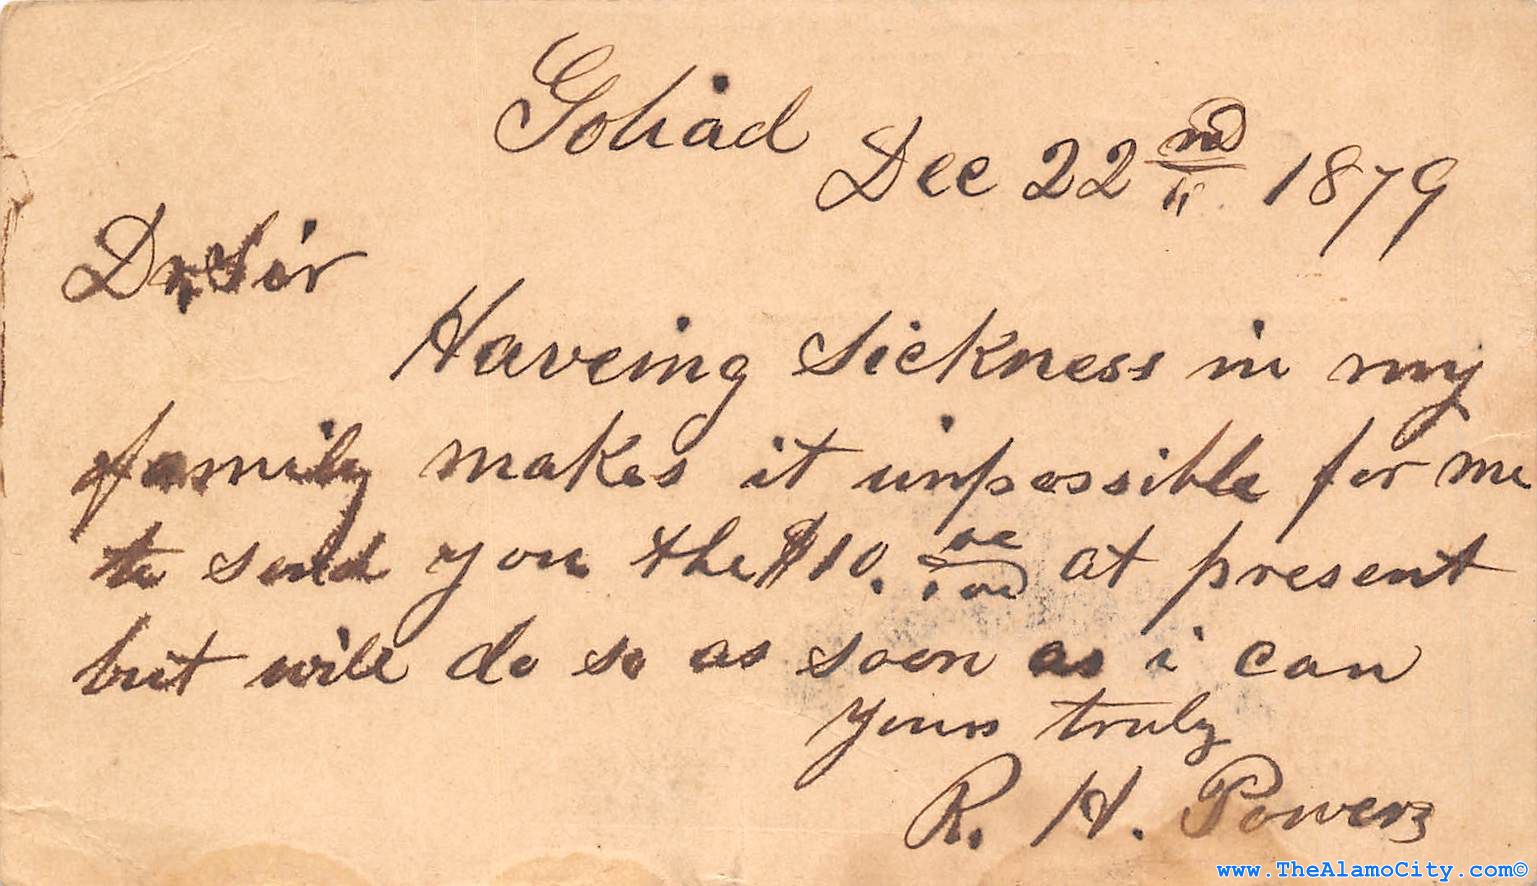 Goliad Dec 22nd 1879
Dr, Sir
Haveing Sickness in my
family makes it unpossible for me
to send you the $10. oo/100 at present
but will do so as soon as i can
yours truly
R. H. Powers
www.TheAlamoCity.com©